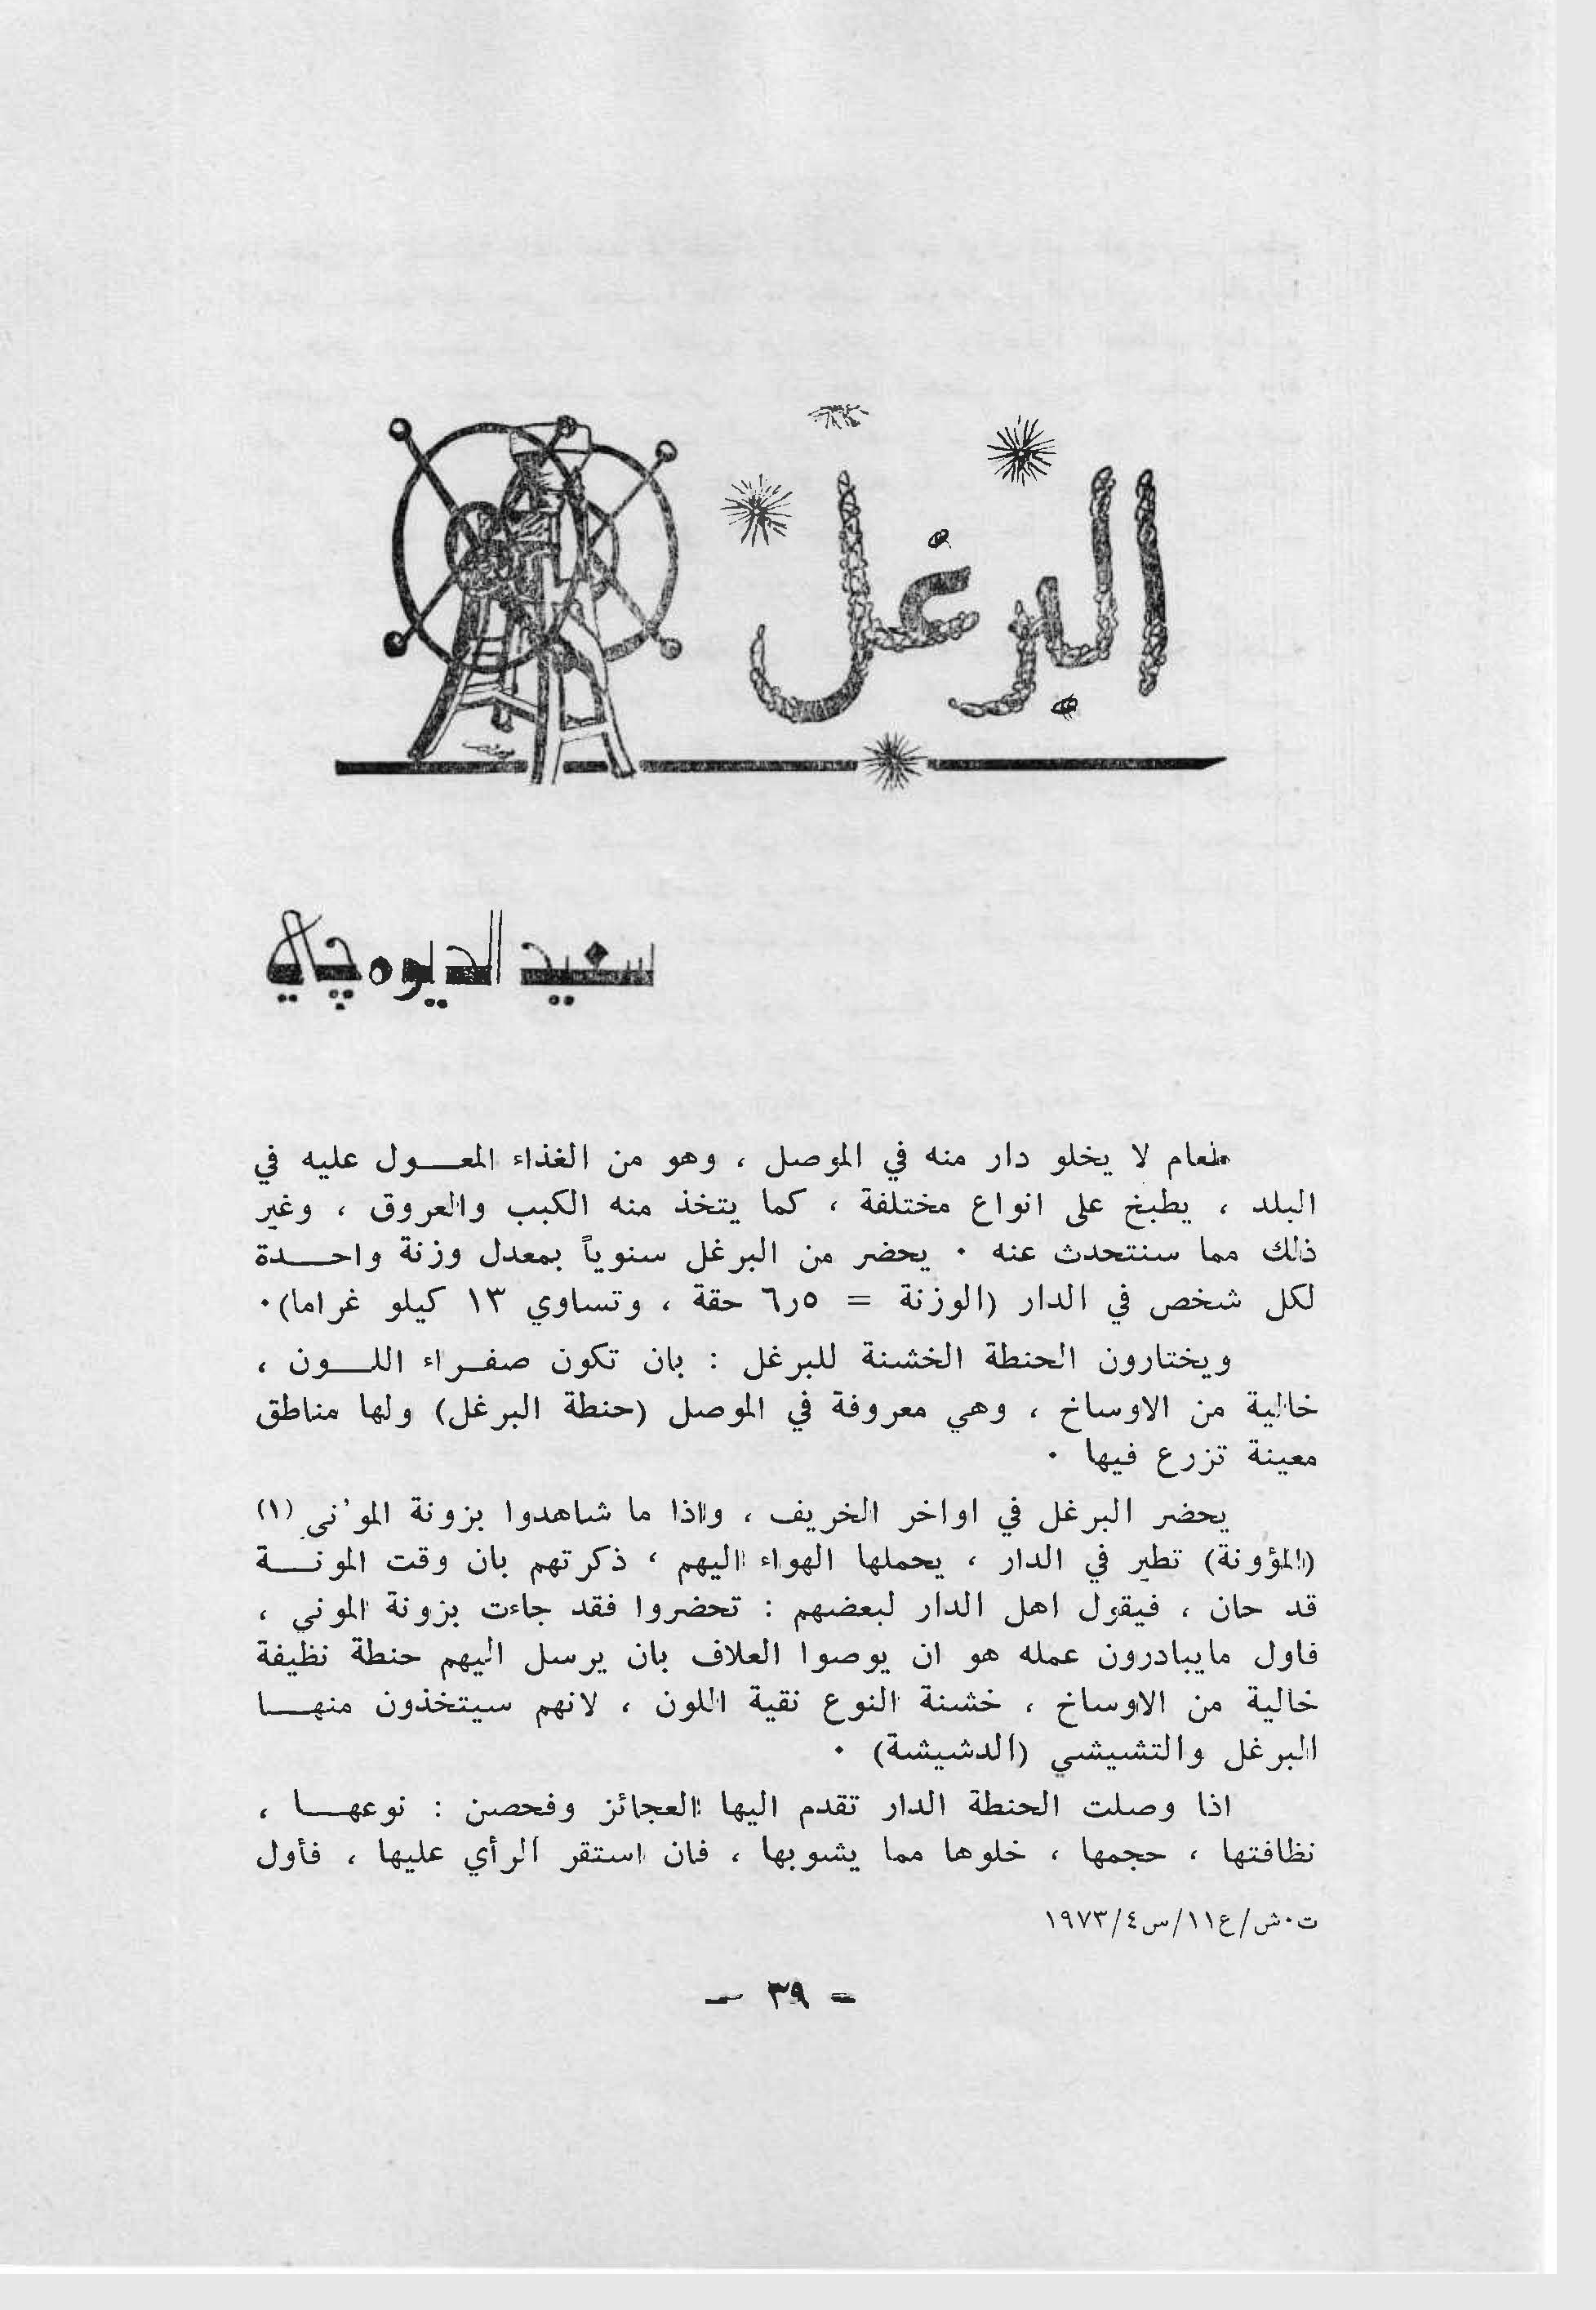 البرغل
سعيد الديوه چي
طعام لا يخلو دار منه في الموصل ، وهو من الغذاء المعـــول عليه في
البلد ، يطبخ على انواع مختلفة ، كما يتخذ منه الكبب والعروق ، وغير
ذلك مما سنتحدث عنه ٠ يحضر من البرغل سنوياً بمعدل وزنة واحـــدة
لكل شخص في الدار (الوزنة = ٥ر٦ حقة ، وتساوي ١٣ كيلو غراما)٠
ويختارون الحنطة الخشنة للبرغل : بان تكون صفـراء اللـــون ،
خالية من الاوساخ ، وهي معروفة في الموصل (حنطة البرغل) ولها مناطق
معينة تزرع فيها ٠
يحضر البرغل في اواخر الخريف ، واذا ما شاهدوا بزونة المو'ني (١)
(المؤونة) تطير في الدار ، يحملها الهواء اليهم ، ذكرتهم بان وقت المونـــة
قد حان ، فيقول اهل الدار لبعضهم : تحضروا فقد جاءت بزونة الموني ،
فاول مايبادرون عمله هو ان يوصوا العلاف بان يرسل اليهم حنطة نظيفة
خالية من الاوساخ ، خشنة النوع نقية اللون ، لانهم سيتخذون منهـــا
البرغل والتشيشي (الدشيشة) ٠
اذا وصلت الحنطة الدار تقدم اليها العجائز وفحصن : نوعهـــا ،
نظافتها ، حجمها ، خلوها مما يشوبها ، فان استقر الرأي عليها ، فأول
ت٠ش/ع١١/س٤/١٩٧٣
- ٣٩ -